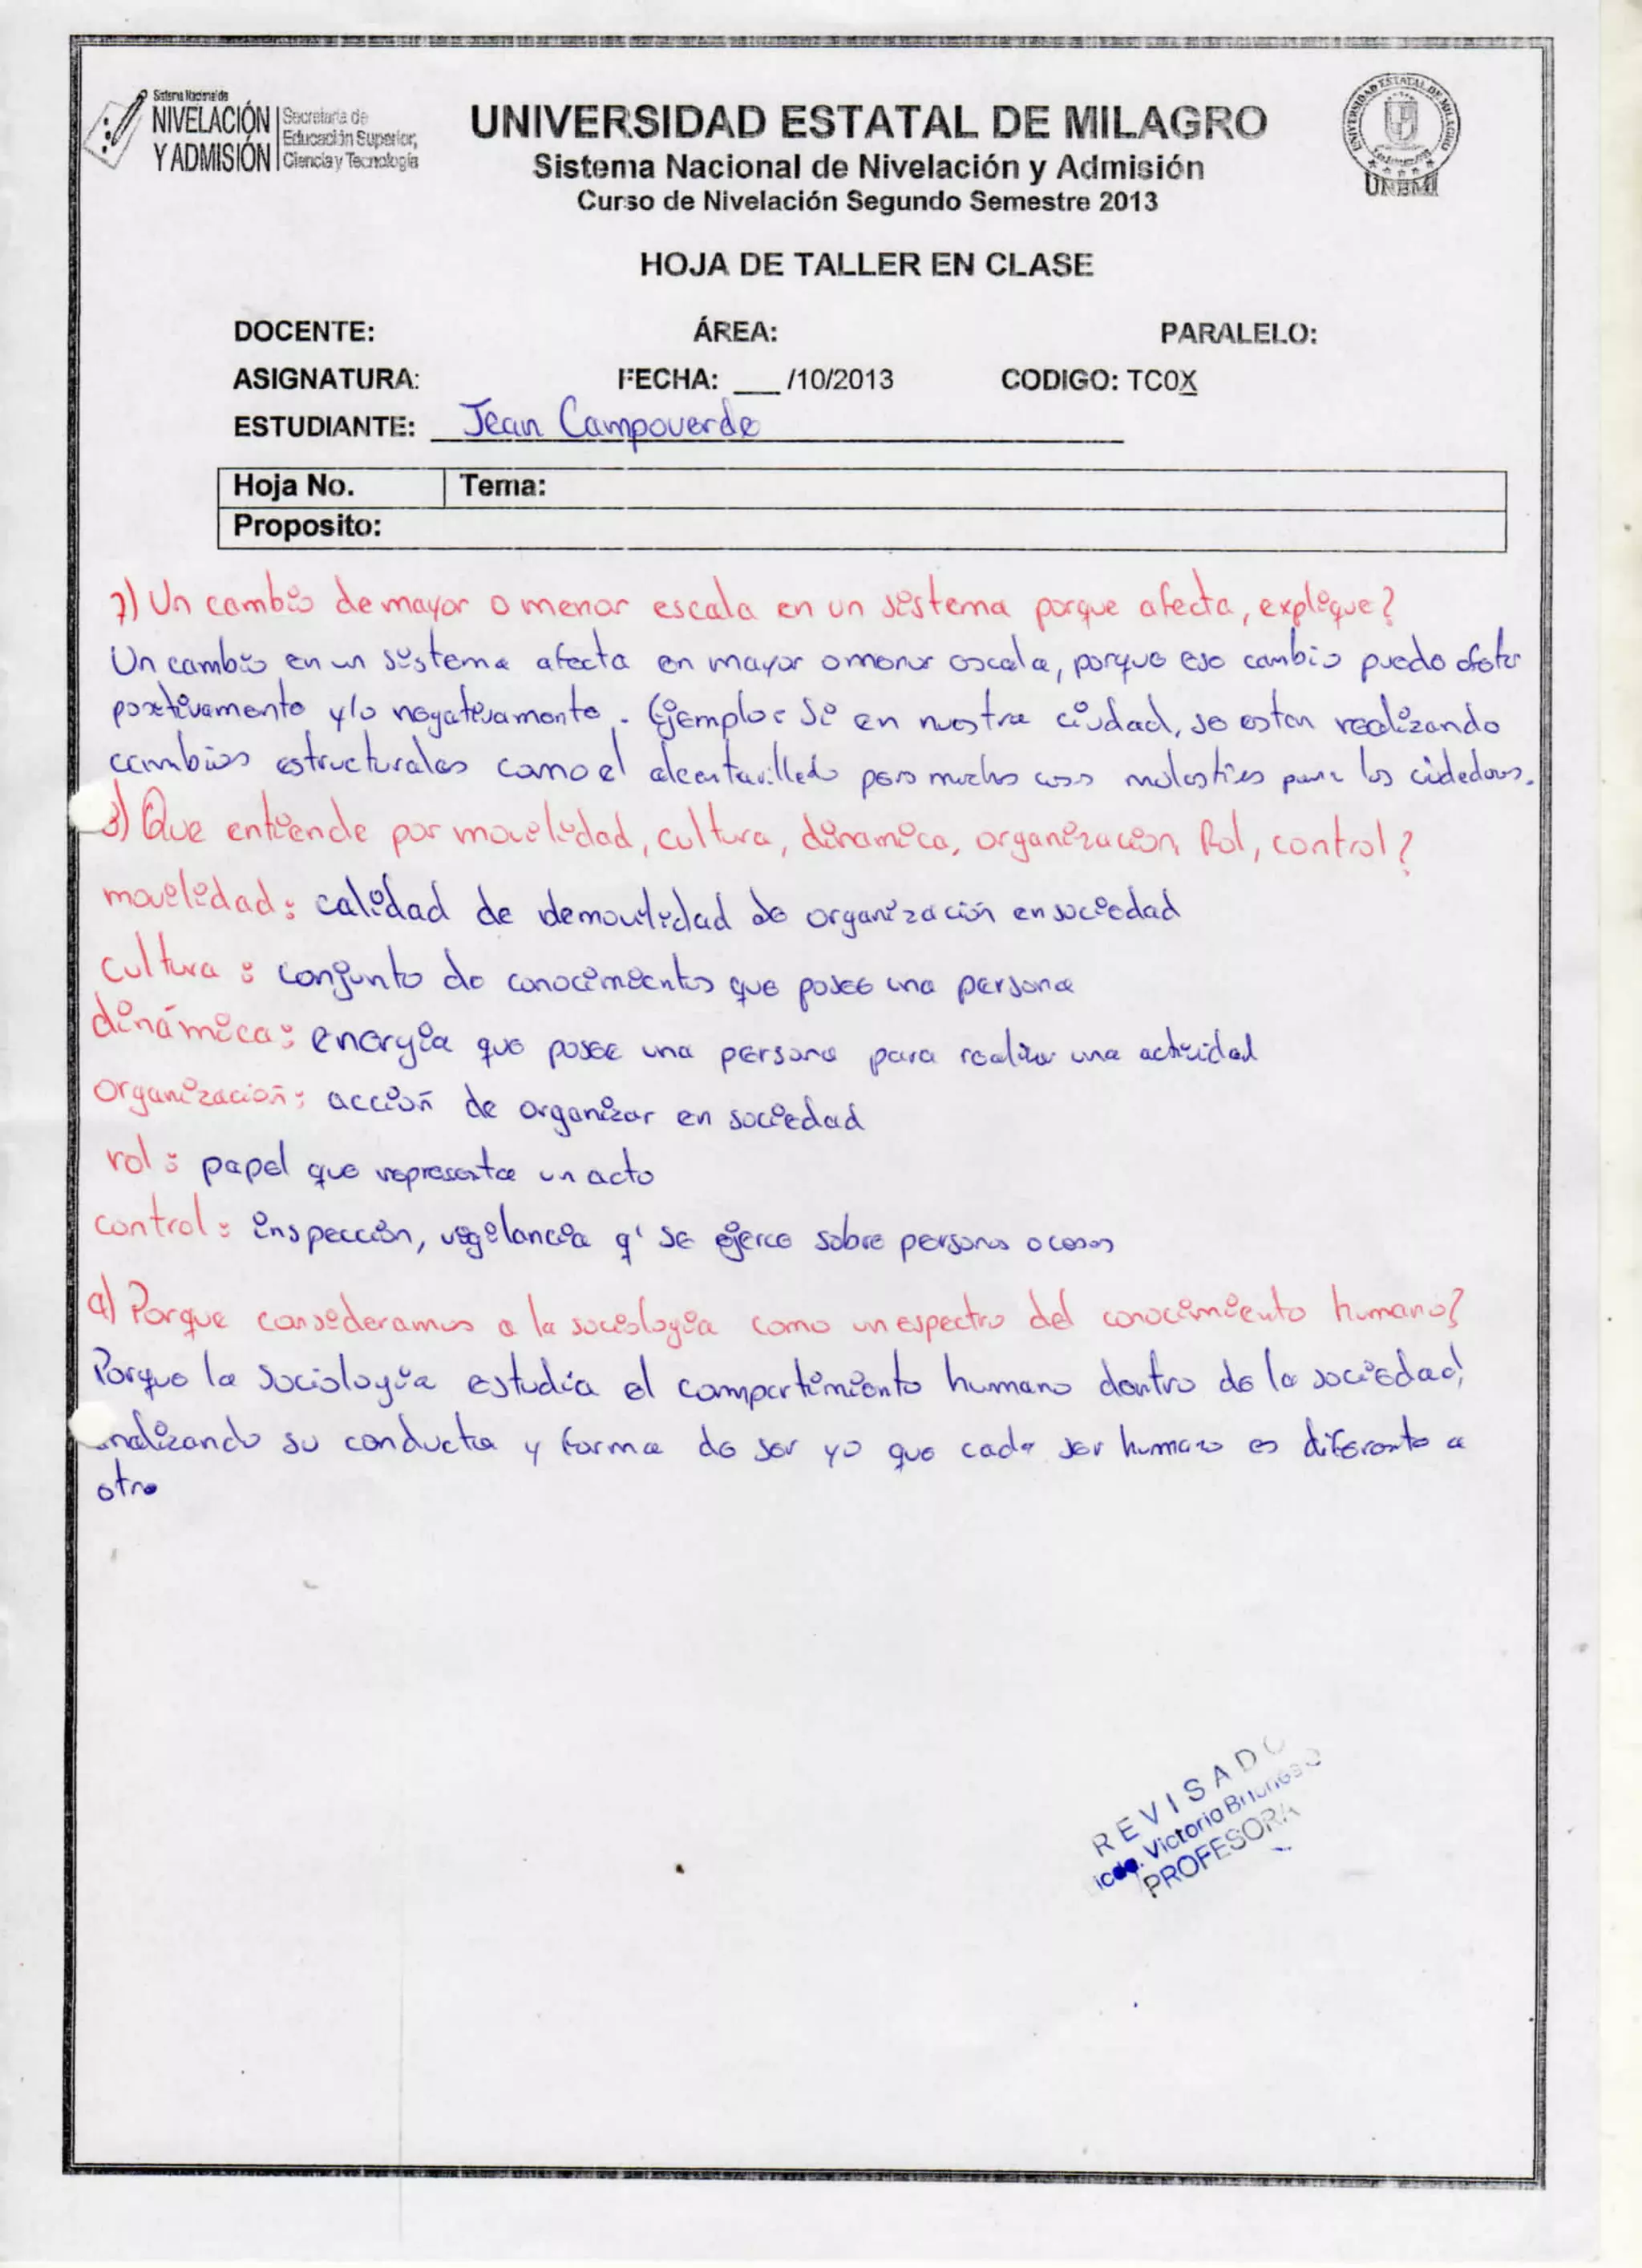 Sistema Nacional de
NIVELACIÓN
Y ADMISIÓN
Secretaría de
Educación Superior,
Ciencia y Tecnología
UNIVERSIDAD ESTATAL DE MILAGRO
Sistema Nacional de Nivelación y Admisión
Curso de Nivelación Segundo Semestre 2013
UNIVERSIDAD ESTATAL DE MILAGRO
UNEMI
HOJA DE TALLER EN CLASE
DOCENTE: ÁREA: PARALELO:
ASIGNATURA: FECHA: ___ /10/2013 CODIGO: TC0X
ESTUDIANTE: Jean Campoverde
Hoja No. Tema:
Proposito:
7) Un cambio de mayor o menor escala en un sistema porque afecta, explique?
Un cambio en un sistema afecta en mayor o menor escala, porque ese cambio puede afectar
positivamente y/o negativamente. Ejemplo: Si en nuestra ciudad, se estan realizando
cambios estructurales como el alcantarillado pero muchas molesties para los
8) Que entiende por movilidad, cultura, dinamica, organización, Rol, control?
movilidad: calidad de demovilidad de organización en sociedad
cultura: conjunto de conocimientos que posee una persona
dinámica: energia que posee una persona para realizar una actividad
organización: acción de organizar en sociedad
rol: papel que representa un acto
control: inspección, vigilancia q' se ejerce sobre personas o cosas
9) Porque consideramos a la sociologia como un espectro del conocimiento humano?
Porque la Sociologia estudia el comportimiento humano dentro de la sociedad,
analizando su conducta y forma de ser ya que cada ser humano es diferente a
otro
REVISADO
Victoria
PROFESORA